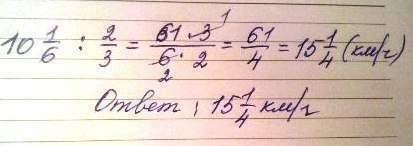 10 1/6 : 2/3 = 61 · 3 1/6 2 · 2 = 61/4 = 15 1/4 (км/г)
Ответ : 15 1/4 км/г